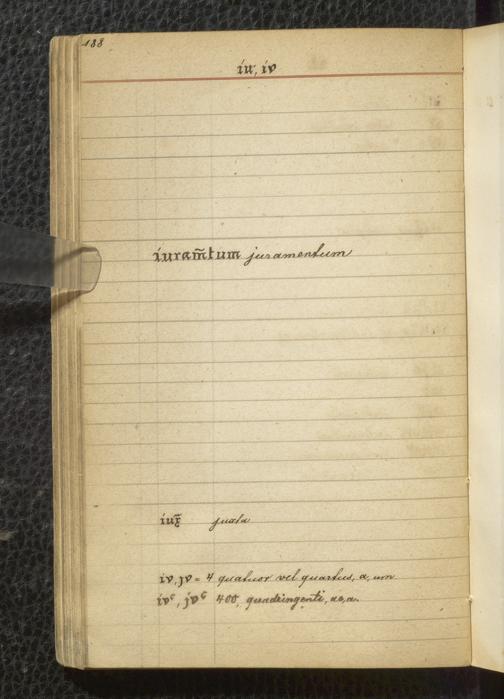 188
iu, iv
iuram̃tum juramentum
iux̃ juxta
iv, jv = 4 quatuor vel quartus, a, um
ivᶜ, jvᶜ 400, quadringenti, ae, a.